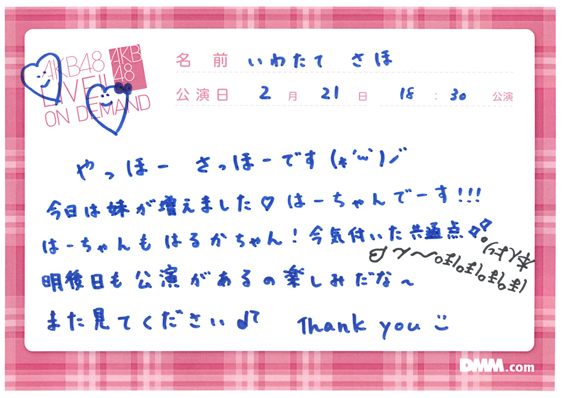 AKB48
LIVE!!
ON DEMAND
AKB
48
名 前 いわたて さほ
公演日 2 月 21 日 18 : 30 公演
やっほー さっほーです(*'ω'*)ノ
今日は妹が増えました♡はーちゃんでーす!!!
はーちゃんもはるかちゃん!今気付いた共通点
明後日も公演があるの楽しみだな〜
また見てください♪ Thank you
DMM.com